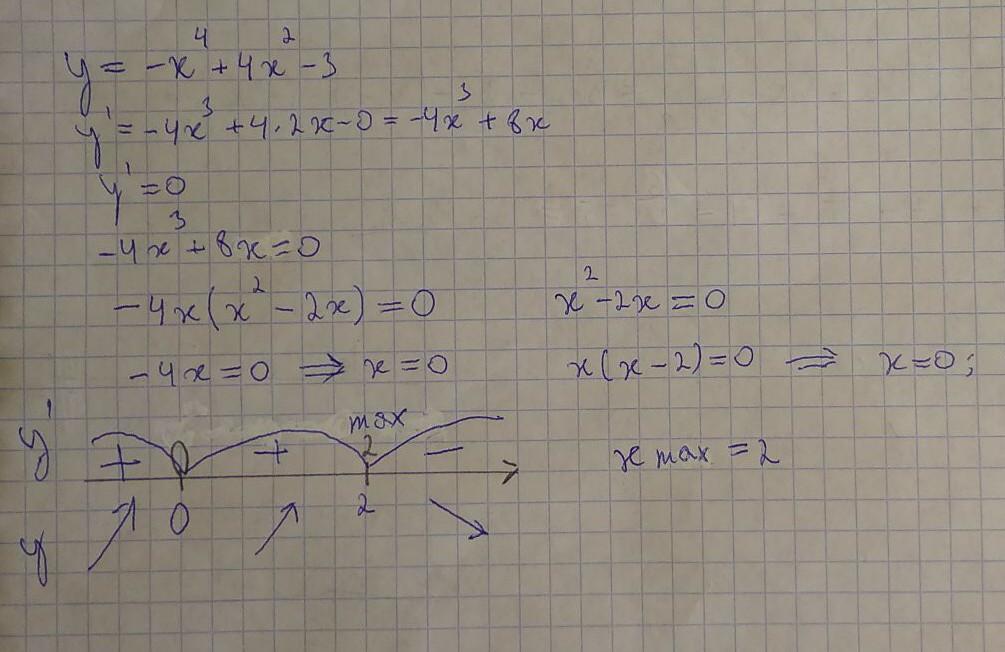 y = -x⁴ + 4x² - 3
y' = -4x³ + 4·2x - 0 = -4x³ + 8x
y' = 0
-4x³ + 8x = 0
-4x(x² - 2x) = 0
x² - 2x = 0
-4x = 0 ⇒ x = 0
x(x - 2) = 0 ⇒ x = 0;
max
y' + 0 + 2 -
x max = 2
0 2
y